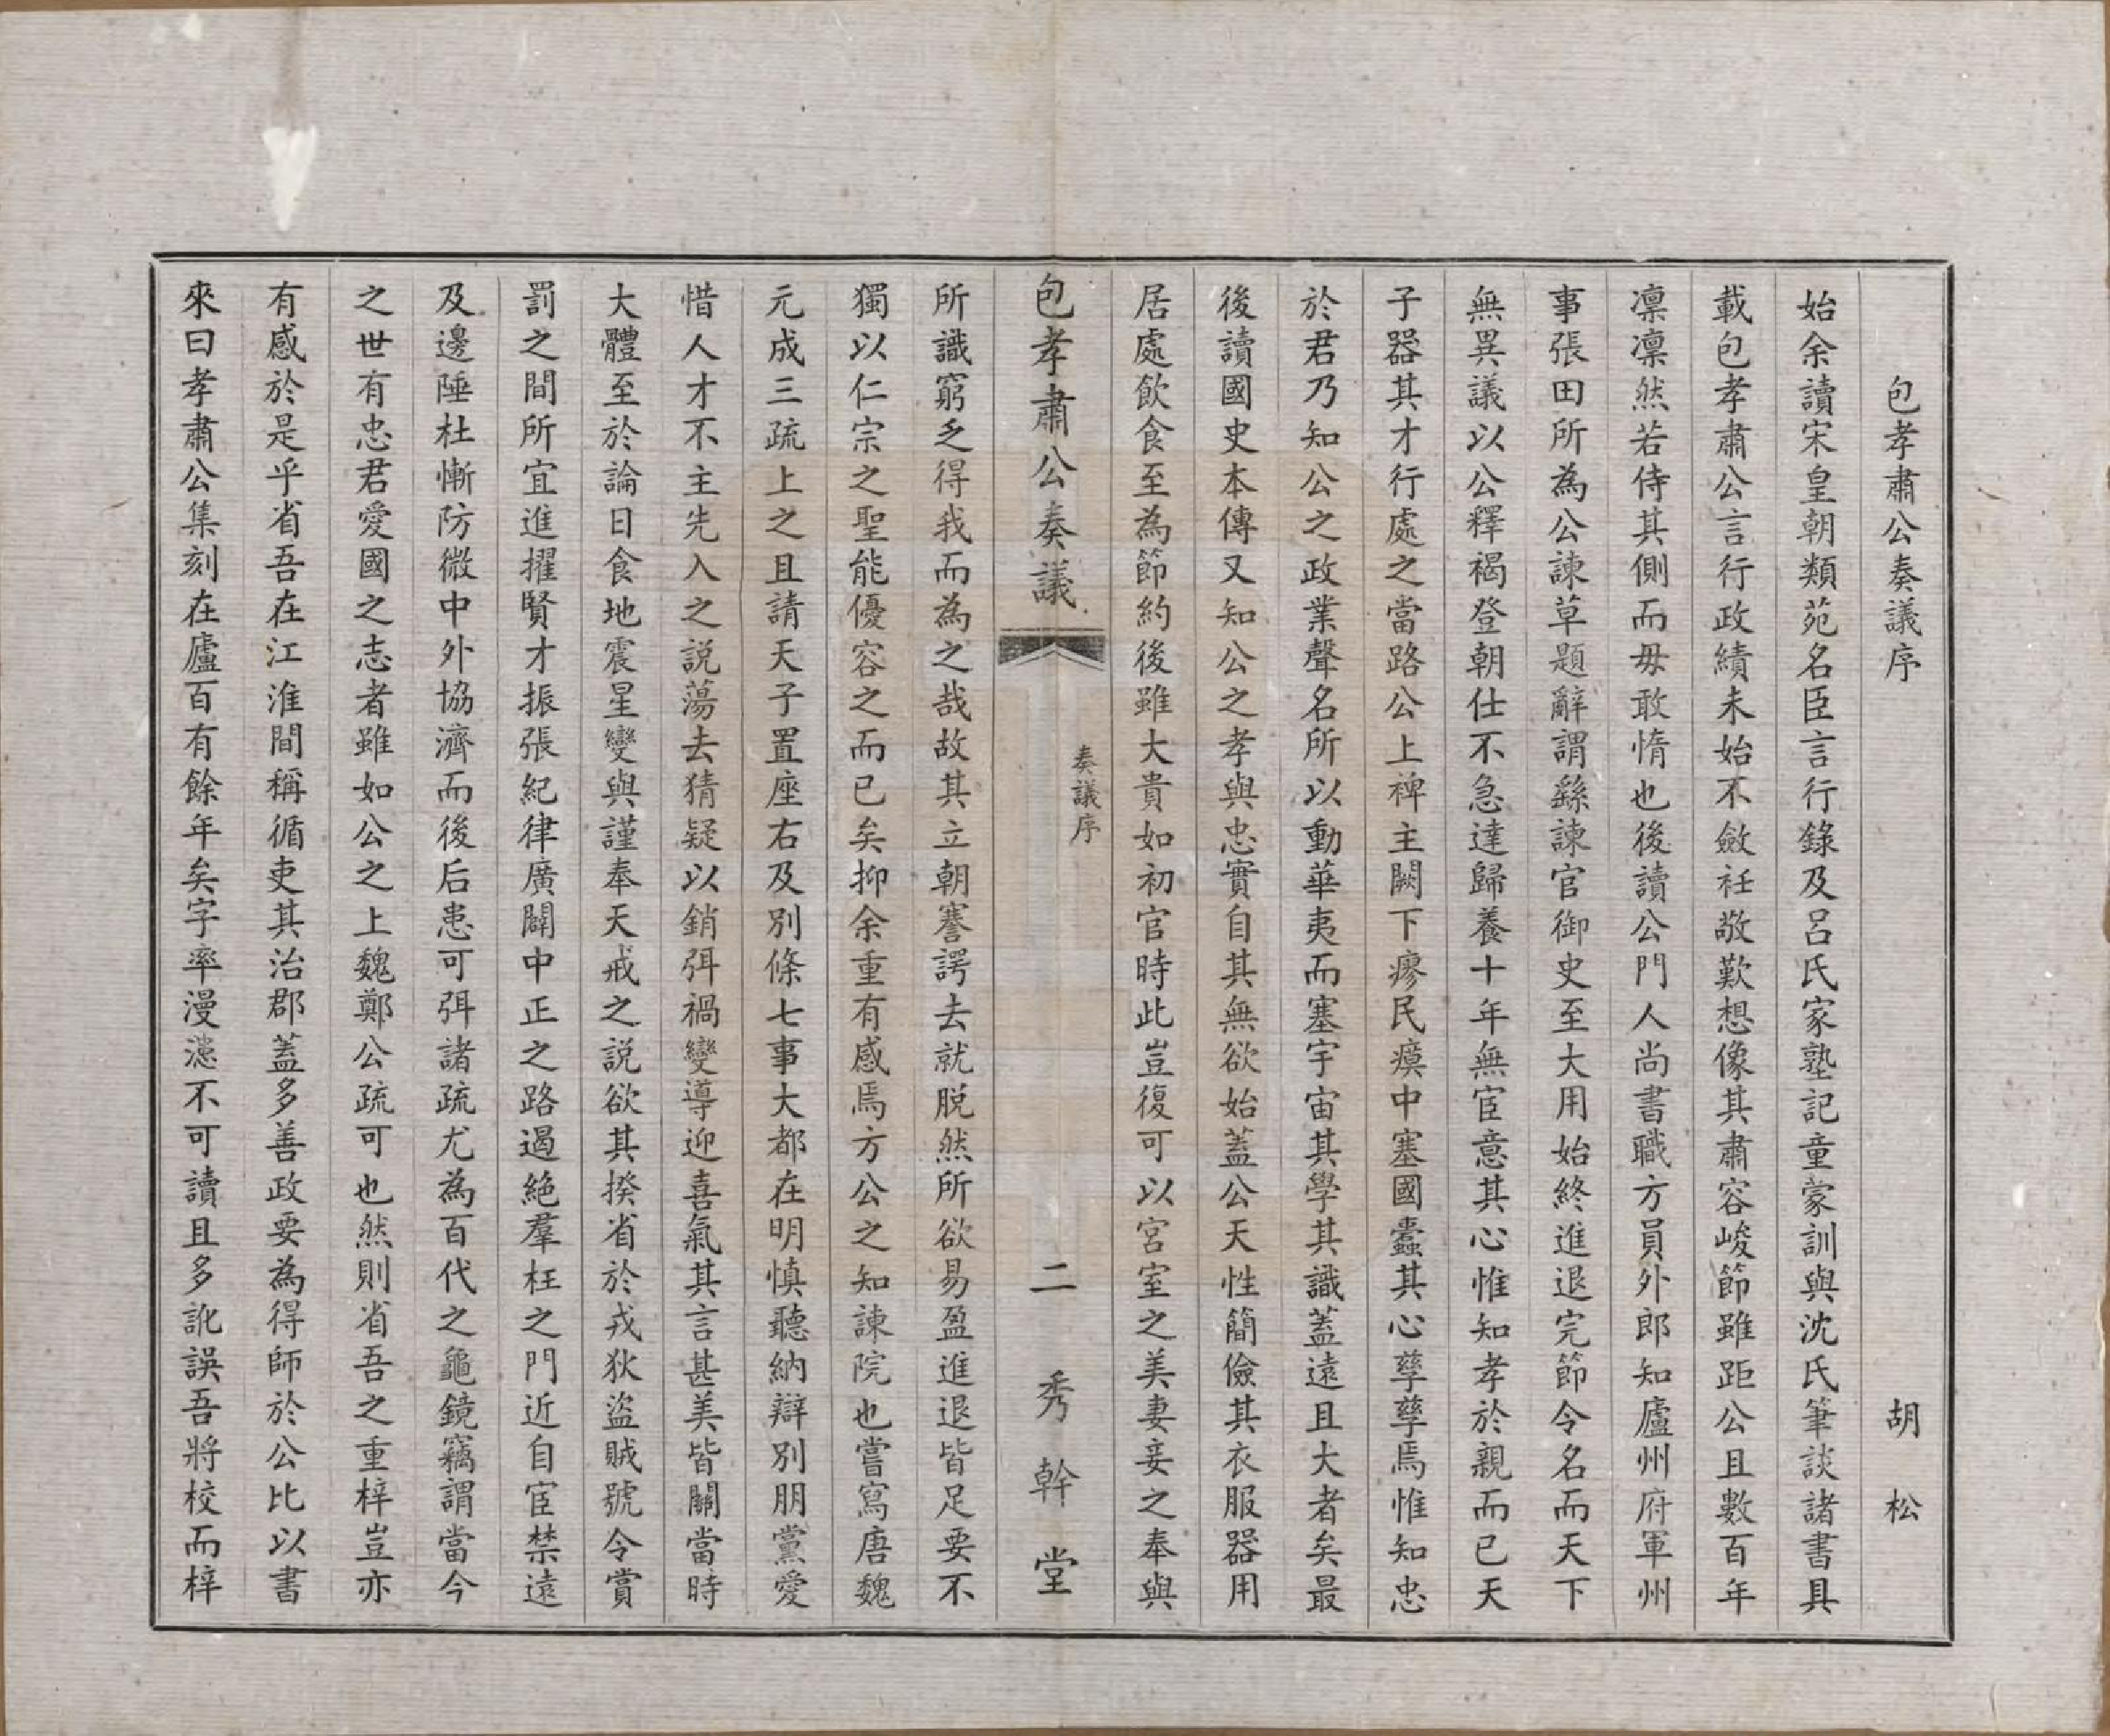 包孝肅公奏議序 胡松
始余讀宋皇朝類苑名臣言行錄及呂氏家塾記童蒙訓與沈氏筆談諸書具
載包孝肅公言行政績未始不斂衽敬歎想像其肅容峻節雖距公且數百年
凛凛然若侍其側而毋敢惰也後讀公門人尚書職方員外郎知廬州府軍州
事張田所為公諫草題辭謂繇諫官御史至大用始終進退完節令名而天下
無異議以公釋褐登朝仕不急達歸養十年無宦意其心惟知孝於親而已天
子器其才行處之當路公上裨主闕下瘳民瘼中塞國蠹其心孳孳焉惟知忠
於君乃知公之政業聲名所以動華夷而塞宇宙其學其識蓋遠且大者矣最
後讀國史本傳又知公之孝與忠實自其無欲始蓋公天性簡儉其衣服器用
居處飲食至為節約後雖大貴如初官時此豈復可以宮室之美妻妾之奉與
包孝肅公奏議 奏議序 二 秀幹堂
所識窮乏得我而為之哉故其立朝謇諤去就脱然所欲易盈進退皆足要不
獨以仁宗之聖能優容之而已矣抑余重有感焉方公之知諫院也嘗寫唐魏
元成三疏上之且請天子置座右及別條七事大都在明慎聽納辯別朋黨愛
惜人才不主先入之說蕩去猜疑以銷弭禍變導迎喜氣其言甚美皆關當時
大體至於論日食地震星變與謹奉天戒之説欲其揆省於戎狄盜賊號令賞
罰之間所宜進擢賢才振張紀律廣闢中正之路遏絶羣枉之門近自宦禁遠
及邊陲杜慚防微中外協濟而後后患可弭諸疏尤為百代之龜鏡竊謂當今
之世有忠君愛國之志者雖如公之上魏鄭公疏可也然則省吾之重梓豈亦
有感於是乎省吾在江淮間稱循吏其治郡蓋多善政要為得師於公比以書
來曰孝肅公集刻在廬百有餘年矣字率漫漶不可讀且多訛誤吾將校而梓